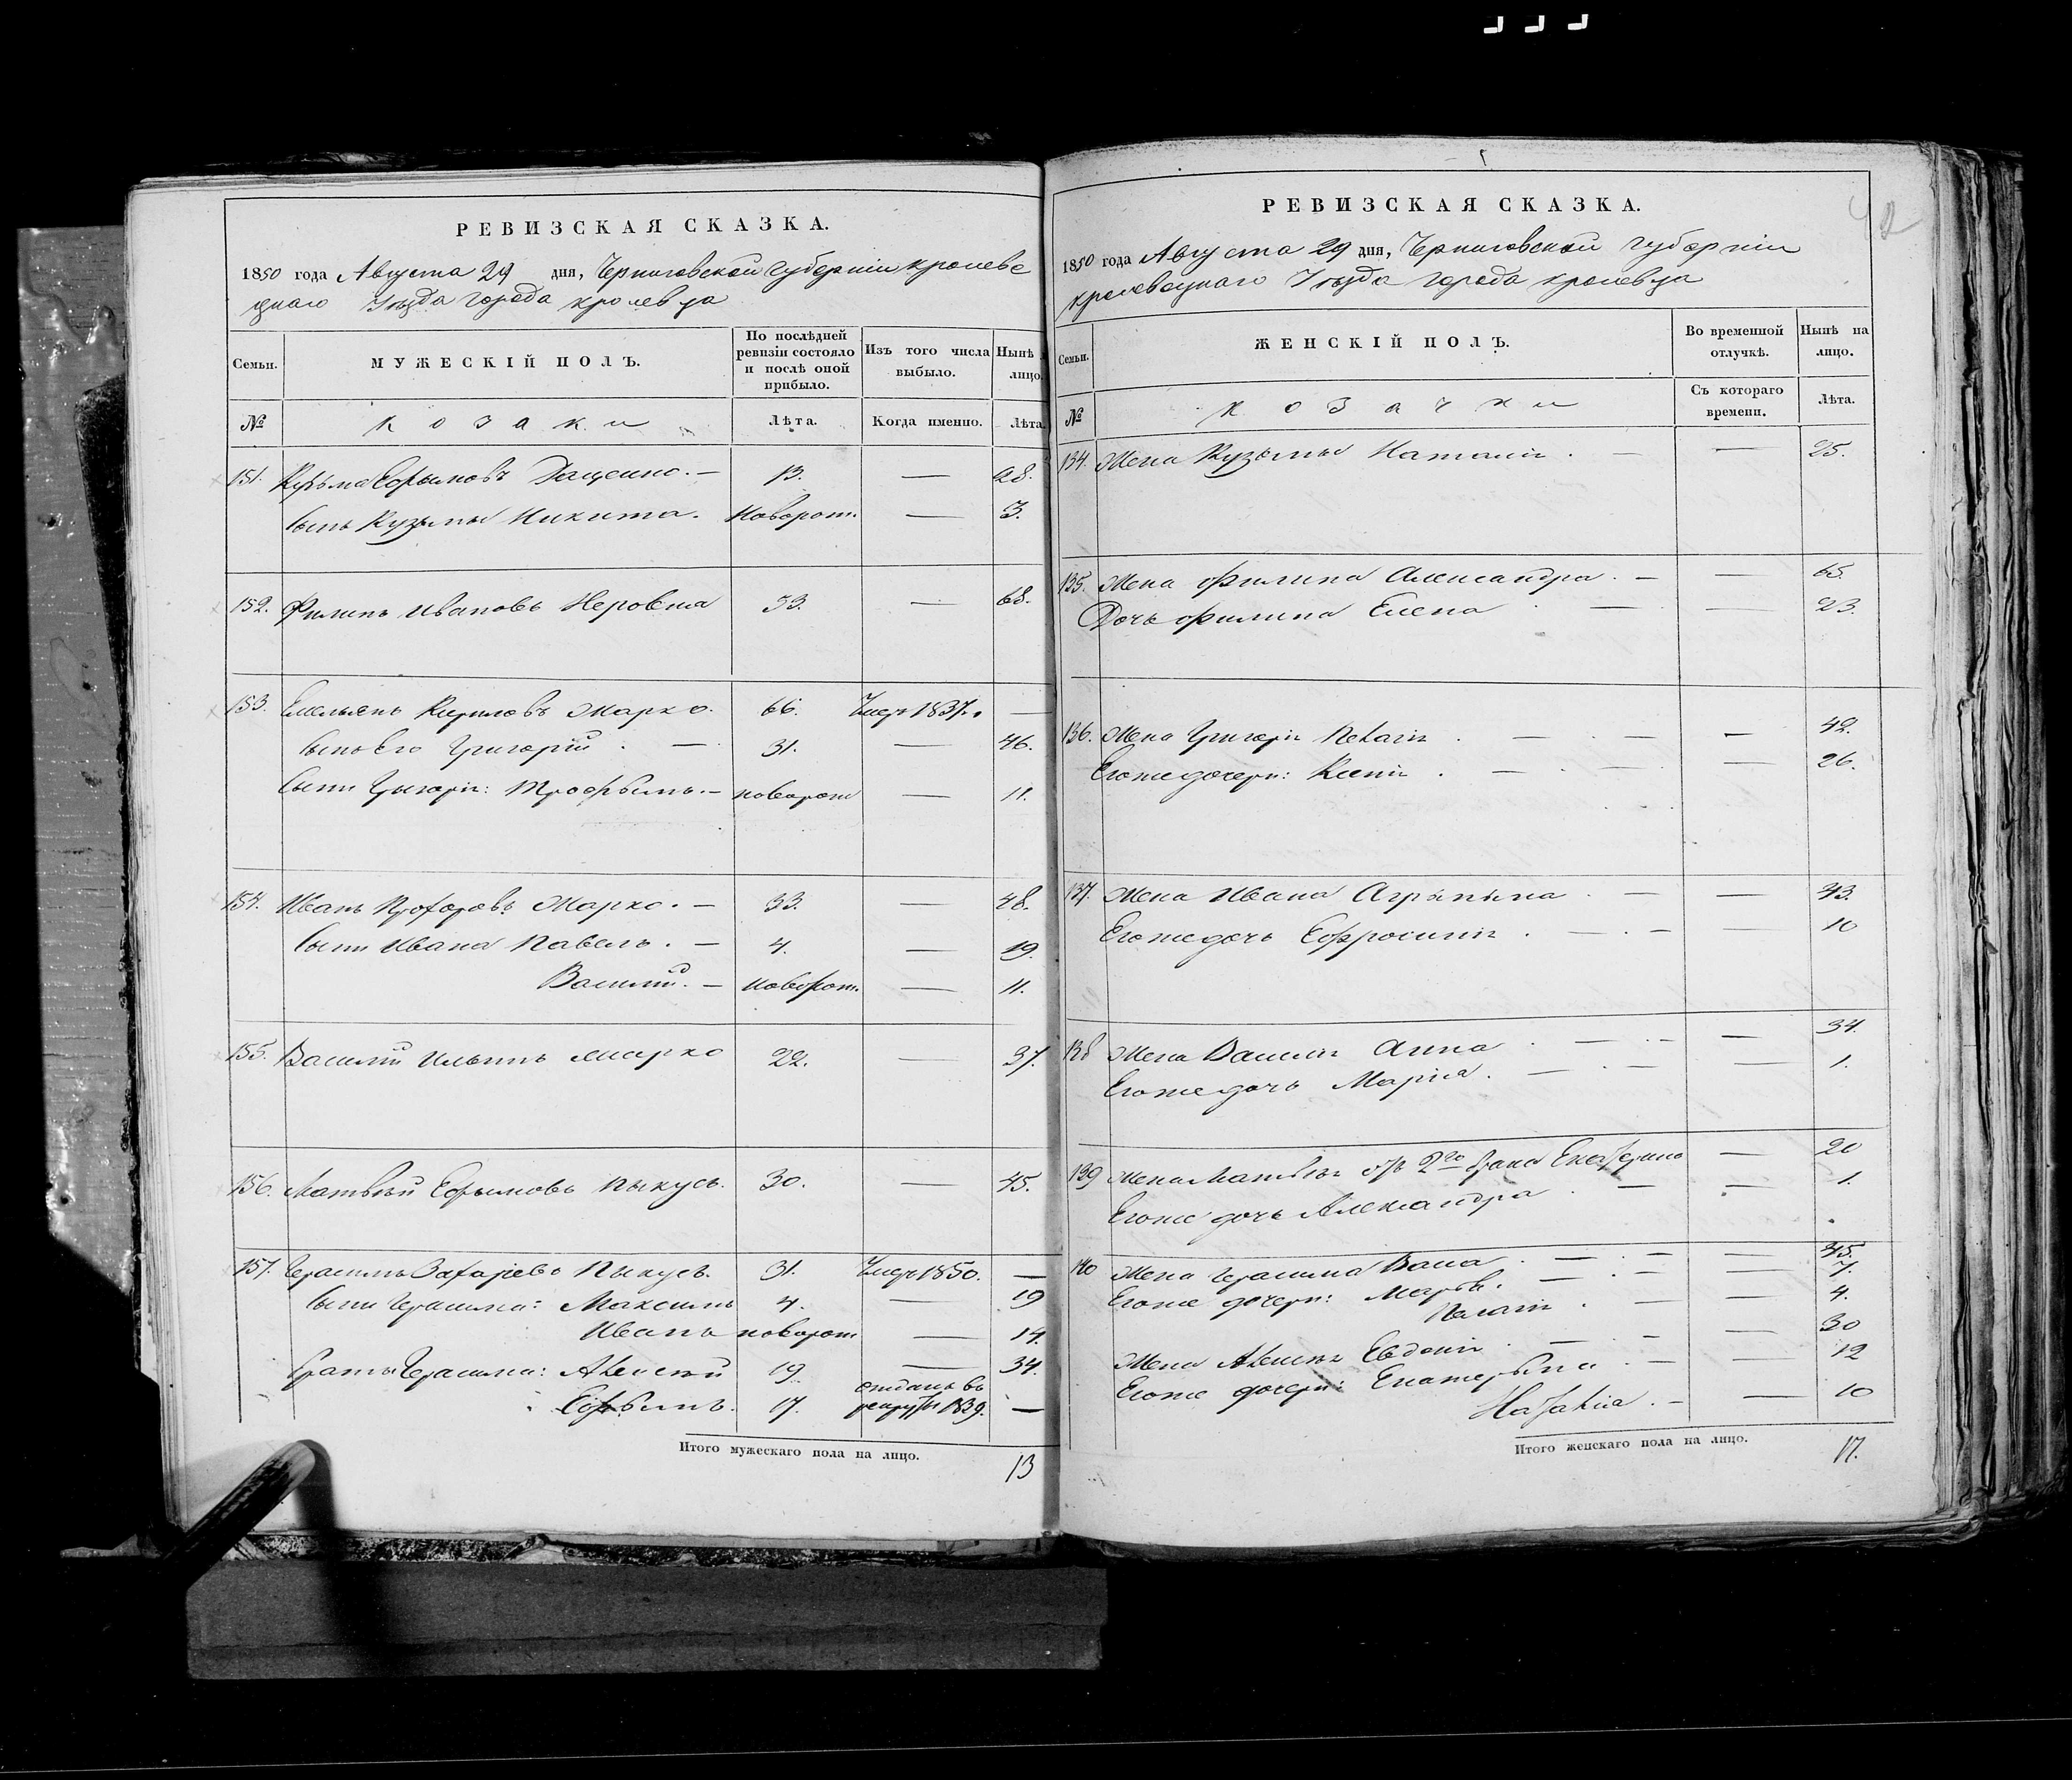 РЕВИЗСКАЯ СКАЗКА.
1850 года Августа 29 дня, Черниговской губерніи кролеве
цкаго Уѣзда города кролевца
Семьи. МУЖЕСКІЙ ПОЛЪ. По послѣдней ревизіи состояло и послѣ оной прибыло. Изъ того числа выбыло. Нынѣ лицо.
№ козаки Лѣта. Когда именно. Лѣта
151. Кузьма Ефимовъ — 13. — 28.
Сынъ Кузьмы Никита. Новорож. — 3.
152. Филипъ Ивановъ Неровна 53. — 68.
153. Емельянъ Кириловъ Марко. 66. Умеръ 1837. —
Сынъ Его Григорій. — 31. — 46.
Сыни Григорія: Трофымъ. — новорож — 11.
154. Иванъ Прохоровъ Марко. — 33. — 48.
Сыни Ивана Павелъ. — 4. — 19.
Василій. — новорож. — 11.
155. Василій Ильинъ Марко 22. — 37.
156. Матвѣй Ефымовъ Пыкусъ. 30. — 45.
157. Герасимъ Захаріевъ Пыкусъ. 31. Умеръ 1850. —
Сыни Герасима: Максимъ 4. — 19
Иванъ новорож — 14.
Браты Герасима: Алексѣй 19. — 34.
Ефымъ. 17. отданъ въ рекруты 1839. —
Итого мужескаго пола на лицо. 13
РЕВИЗСКАЯ СКАЗКА.
42
1850 года Августа 29 дня, Черниговской губерніи
кролевецкаго Уѣзда города кролевца
Семьи. ЖЕНСКІЙ ПОЛЪ. Во временной отлучкѣ. Нынѣ на лицо.
№ козачки Съ котораго времени. Лѣта.
134. Жена Кузьмы Наталія. — — 25.
135. Жена Филипа Александра. — — 65.
Дочь Филипа Елена. — — 23.
136. Жена Григорія Пелагія. — — — 42.
Егоже дочери: Ксенія. — — — 26.
137. Жена Ивана Агрипина. — — 43.
Егоже дочь Ефросинія. — — — 10
138 Жена Василія Анна. — — — 34.
Егоже дочь Марія. — — — 1.
139 Жена Матвѣя отъ 2го брака Екатерина — 20
Егоже дочь Александра. — — 1.
140 Жена Герасима Васа. — — — 45.
Егоже дочери: Марѳа. — — — 7.
Пелагія. — — 4.
Жена Алексѣя Евдокія. — — — 30
Егоже дочери: Екатерына. — — 12
Наталія. — — 10
Итого женскаго пола на лицо. 17.